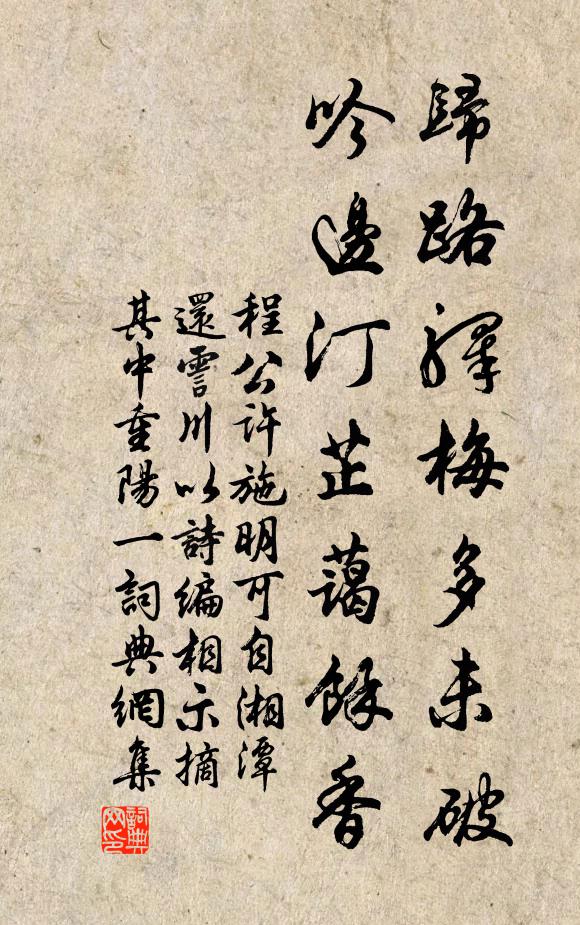 歸路驛梅多未破
吟邊汀芷藹餘香
程公許施明可自湘潭
還霅川以詩編相示摘
其中重陽一詞典網集
詞典網印